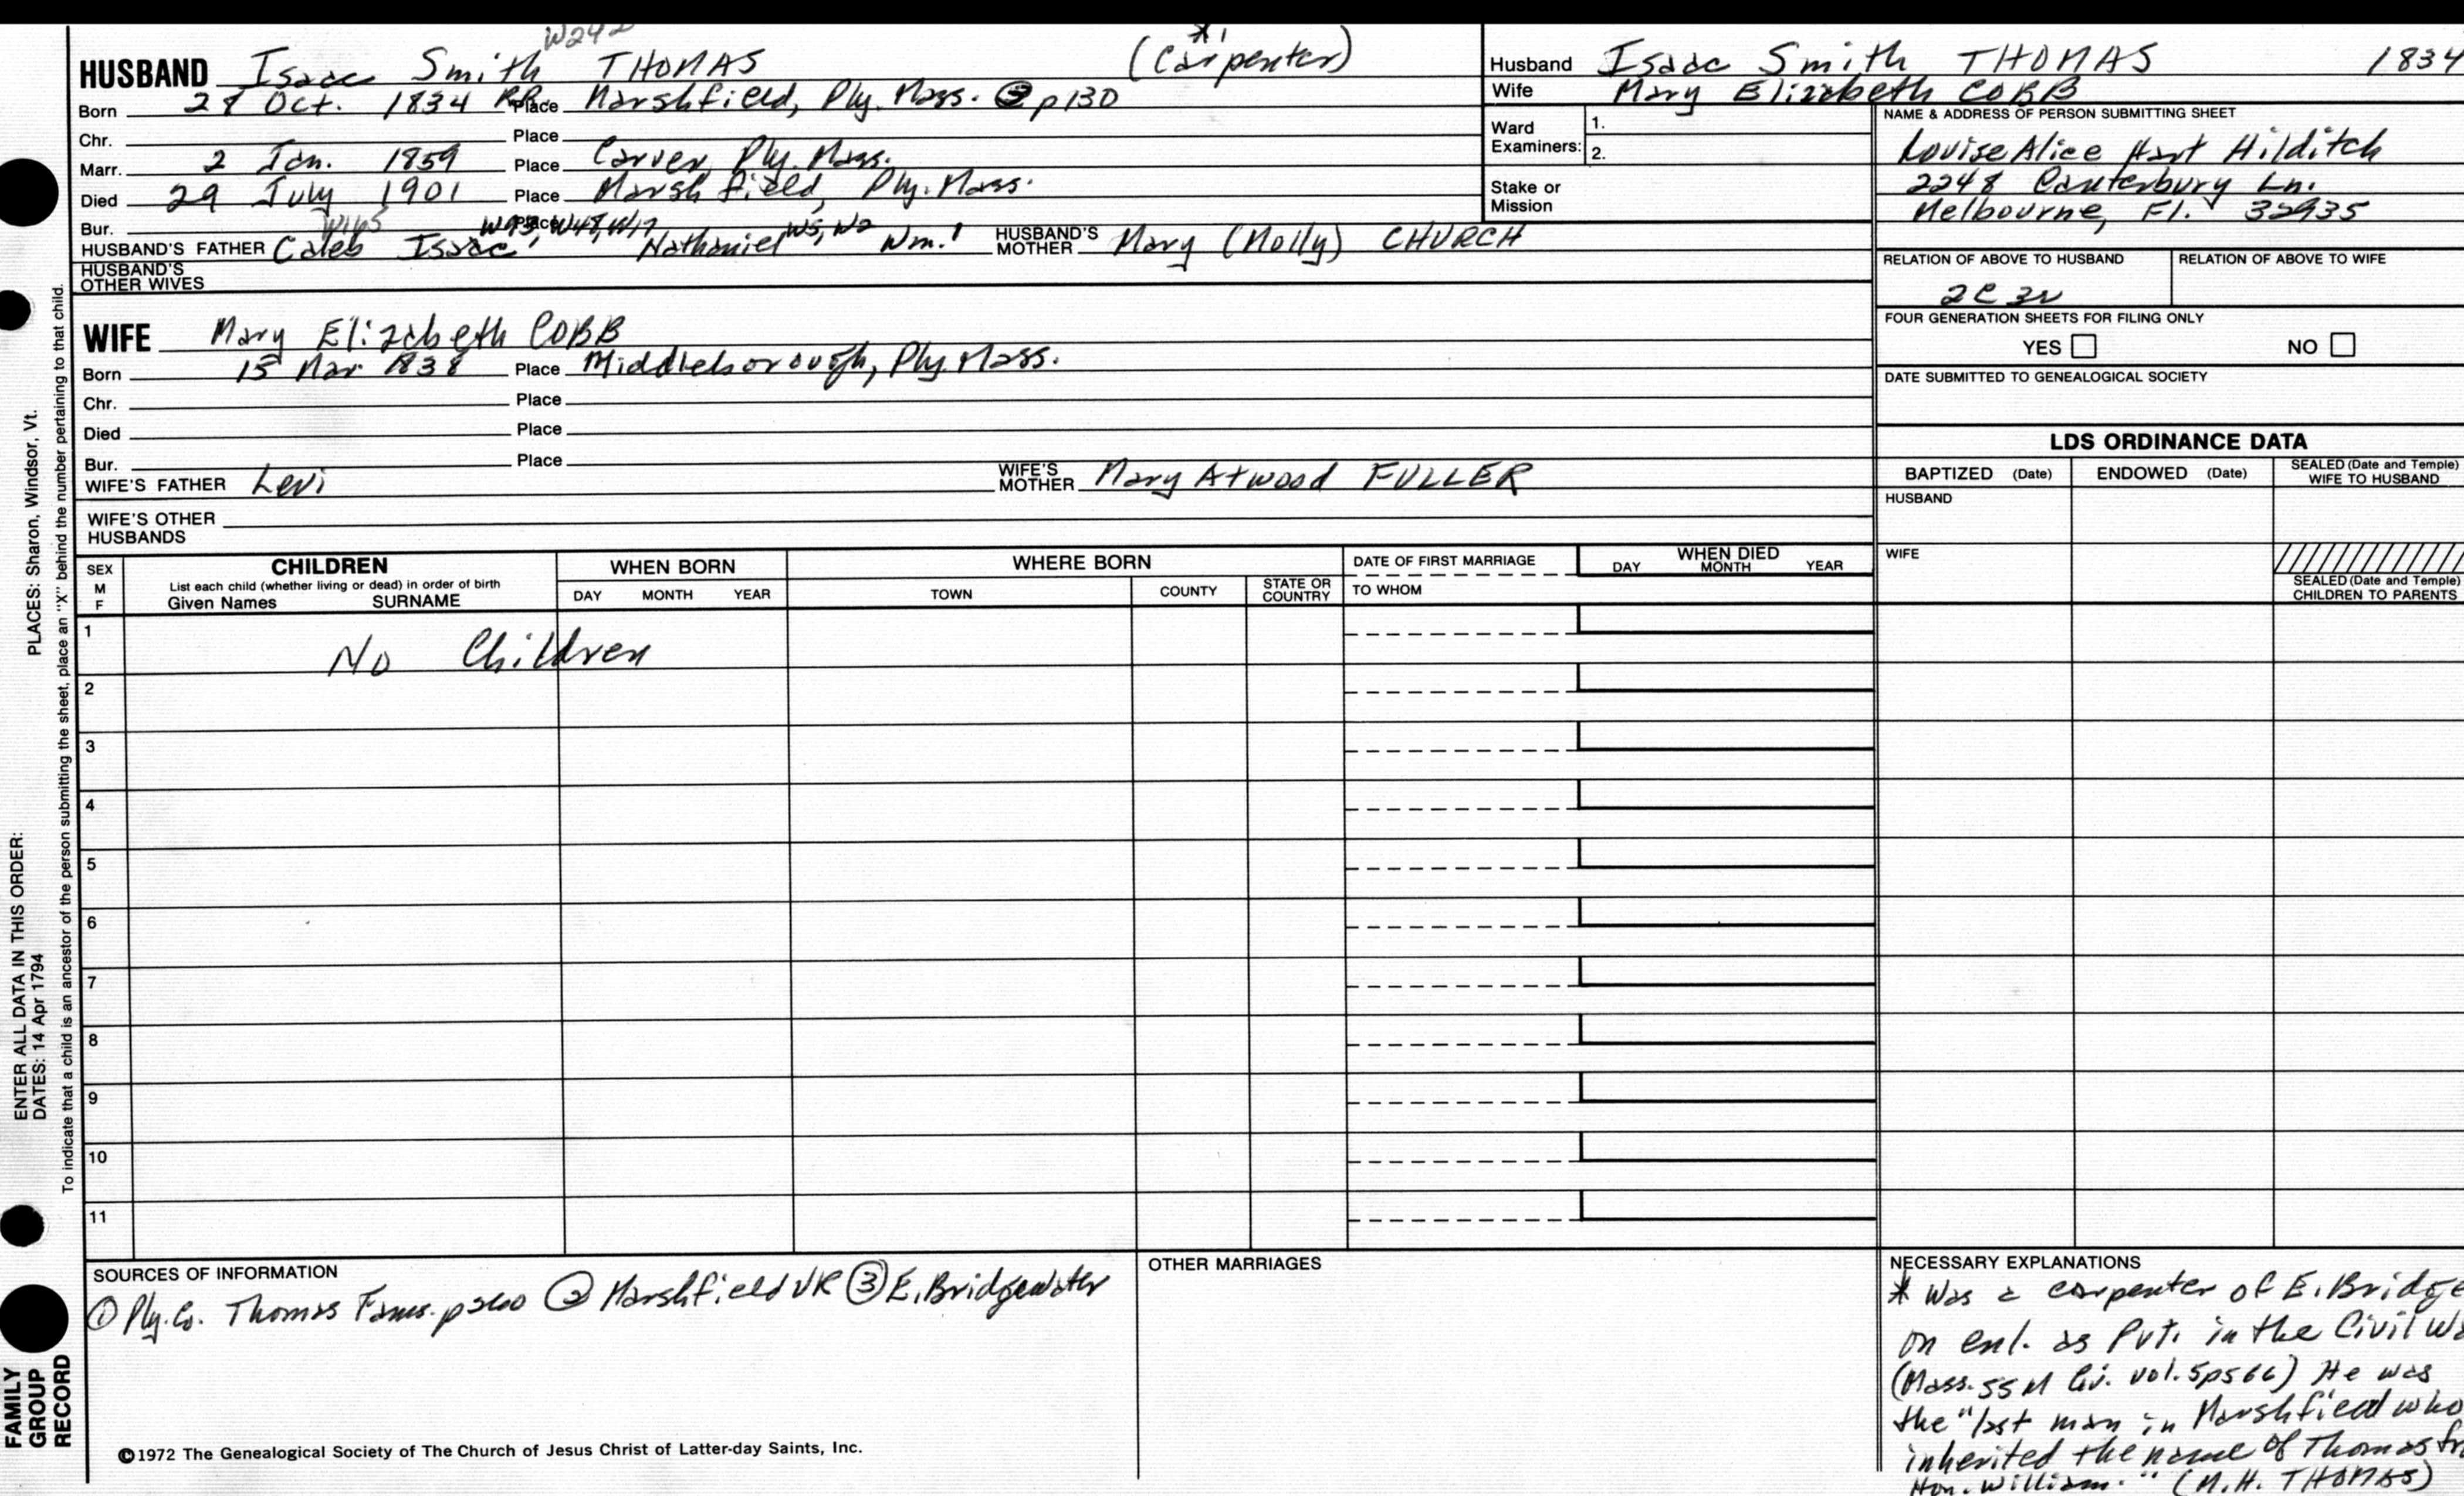 W242
HUSBAND Isaac Smith THOMAS (Carpenter) *1
Born 28 Oct. 1834 Place Marshfield, Ply. Mass. p130
Chr. Place
Marr. 2 Jan. 1859 Place Carver, Ply. Mass.
Died 29 July 1901 Place Marshfield, Ply. Mass.
Bur. Place
W165 W93, W48, W17 W5, W2
HUSBAND'S FATHER Caleb Isaac Nathaniel Wm.1 HUSBAND'S MOTHER Mary (Molly) CHURCH
HUSBAND'S OTHER WIVES
WIFE Mary Elizabeth COBB
Born 15 Mar 1838 Place Middleborough, Ply. Mass.
Chr. Place
Died Place
Bur. Place
WIFE'S FATHER Levi WIFE'S MOTHER Mary Atwood FULLER
WIFE'S OTHER HUSBANDS
Husband Isaac Smith THOMAS 1834
Wife Mary Elizabeth COBB
Ward Examiners: 1.
2.
Stake or Mission
NAME & ADDRESS OF PERSON SUBMITTING SHEET
Louise Alice Hart Hilditch
2248 Canterbury Ln.
Melbourne, Fl. 32935
RELATION OF ABOVE TO HUSBAND RELATION OF ABOVE TO WIFE
2C 3r
FOUR GENERATION SHEETS FOR FILING ONLY
YES NO
DATE SUBMITTED TO GENEALOGICAL SOCIETY
LDS ORDINANCE DATA
BAPTIZED (Date) ENDOWED (Date) SEALED (Date and Temple) WIFE TO HUSBAND
HUSBAND
WIFE
SEALED (Date and Temple) CHILDREN TO PARENTS
SEX M F
CHILDREN
List each child (whether living or dead) in order of birth
Given Names SURNAME
WHEN BORN
DAY MONTH YEAR
WHERE BORN
TOWN COUNTY STATE OR COUNTRY
DATE OF FIRST MARRIAGE
TO WHOM
WHEN DIED
DAY MONTH YEAR
1 No Children
2
3
4
5
6
7
8
9
10
11
SOURCES OF INFORMATION
① Ply. Co. Thomas Fams. p260 ② Marshfield VR ③ E. Bridgewater
OTHER MARRIAGES
NECESSARY EXPLANATIONS
* Was a carpenter of E. Bridge
on enl. as Pvt. in the Civil Wa
(Mass. SSM Civ. vol. 5 p566) He was
the "last man in Marshfield who
inherited the name of Thomas fr
Hon. William." (M.H. THOMAS)
©1972 The Genealogical Society of The Church of Jesus Christ of Latter-day Saints, Inc.
ENTER ALL DATA IN THIS ORDER:
DATES: 14 Apr 1794 PLACES: Sharon, Windsor, Vt.
To indicate that a child is an ancestor of the person submitting the sheet, place an "X" behind the number pertaining to that child.
FAMILY
GROUP
RECORD